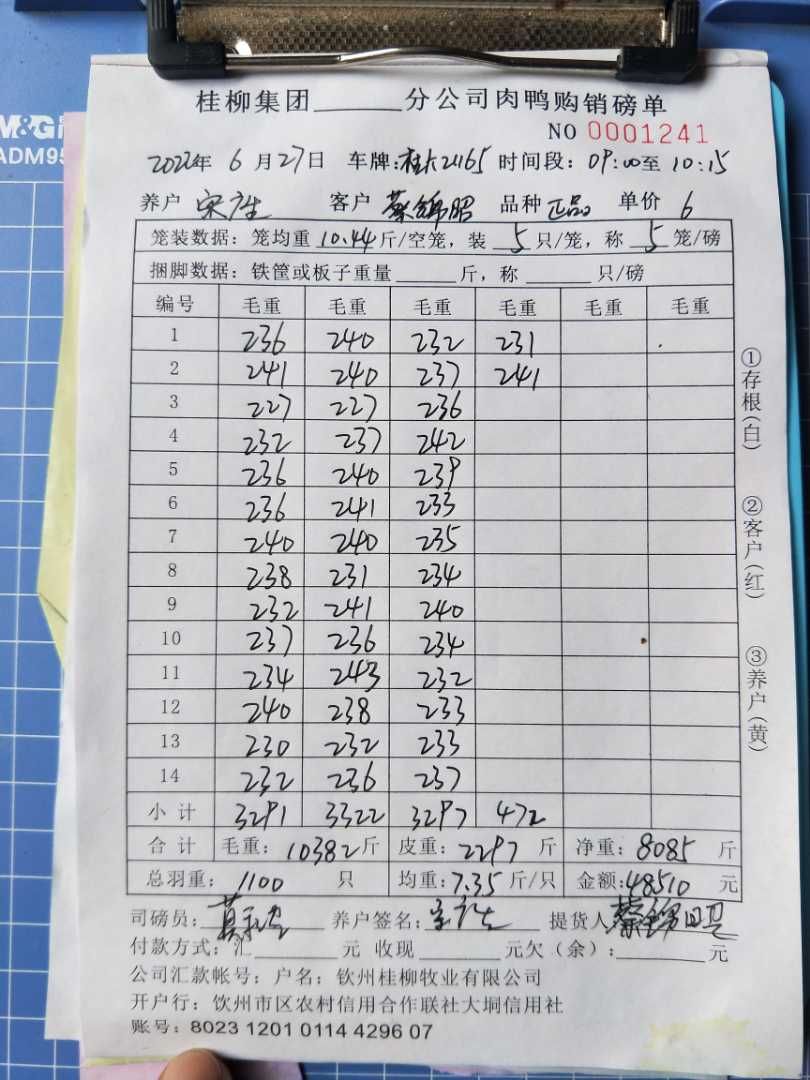 M&G
ADM95
桂柳集团______分公司肉鸭购销磅单
NO 0001241
2022年 6月27日 车牌:桂A21165 时间段:09:00至10:15
养户 客户 蔡锦昭 品种 正品 单价 6
笼装数据:笼均重10.44斤/空笼,装5只/笼,称5笼/磅
捆脚数据:铁筐或板子重量______斤,称______只/磅
编号 毛重 毛重 毛重 毛重 毛重 毛重
1 236 240 232 231
2 241 240 237 241
3 227 227 236
4 232 237 242
5 236 240 239
6 236 241 233
7 240 240 235
8 238 231 234
9 232 241 240
10 237 236 234
11 234 243 232
12 240 238 233
13 230 232 233
14 232 236 237
小计 3291 3322 3297 472
合计 毛重:10382斤 皮重:2297斤 净重:8085斤
总羽重:1100只 均重:7.35斤/只 金额:48510元
司磅员: 养户签名: 提货人 蔡锦昭
付款方式:汇______元 收现______元欠(余):______元
公司汇款帐号:户名:钦州桂柳牧业有限公司
开户行:钦州市区农村信用合作联社大垌信用社
账号:8023 1201 0114 4296 07
①存根(白)
②客户(红)
③养户(黄)